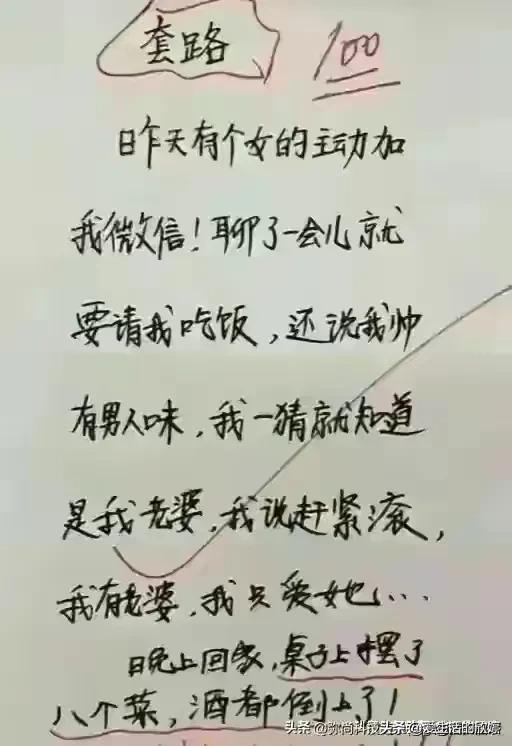 套路 100
昨天有个女的主动加
我微信！聊了一会儿就
要请我吃饭，还说我帅
有男人味，我一猜就知道
是我老婆，我说赶紧滚，
我有老婆，我只爱她…
晚上回家，桌子上摆了
八个菜，酒都倒上了！
头条 @弥尚科 头条 @爱生活的欣嫁